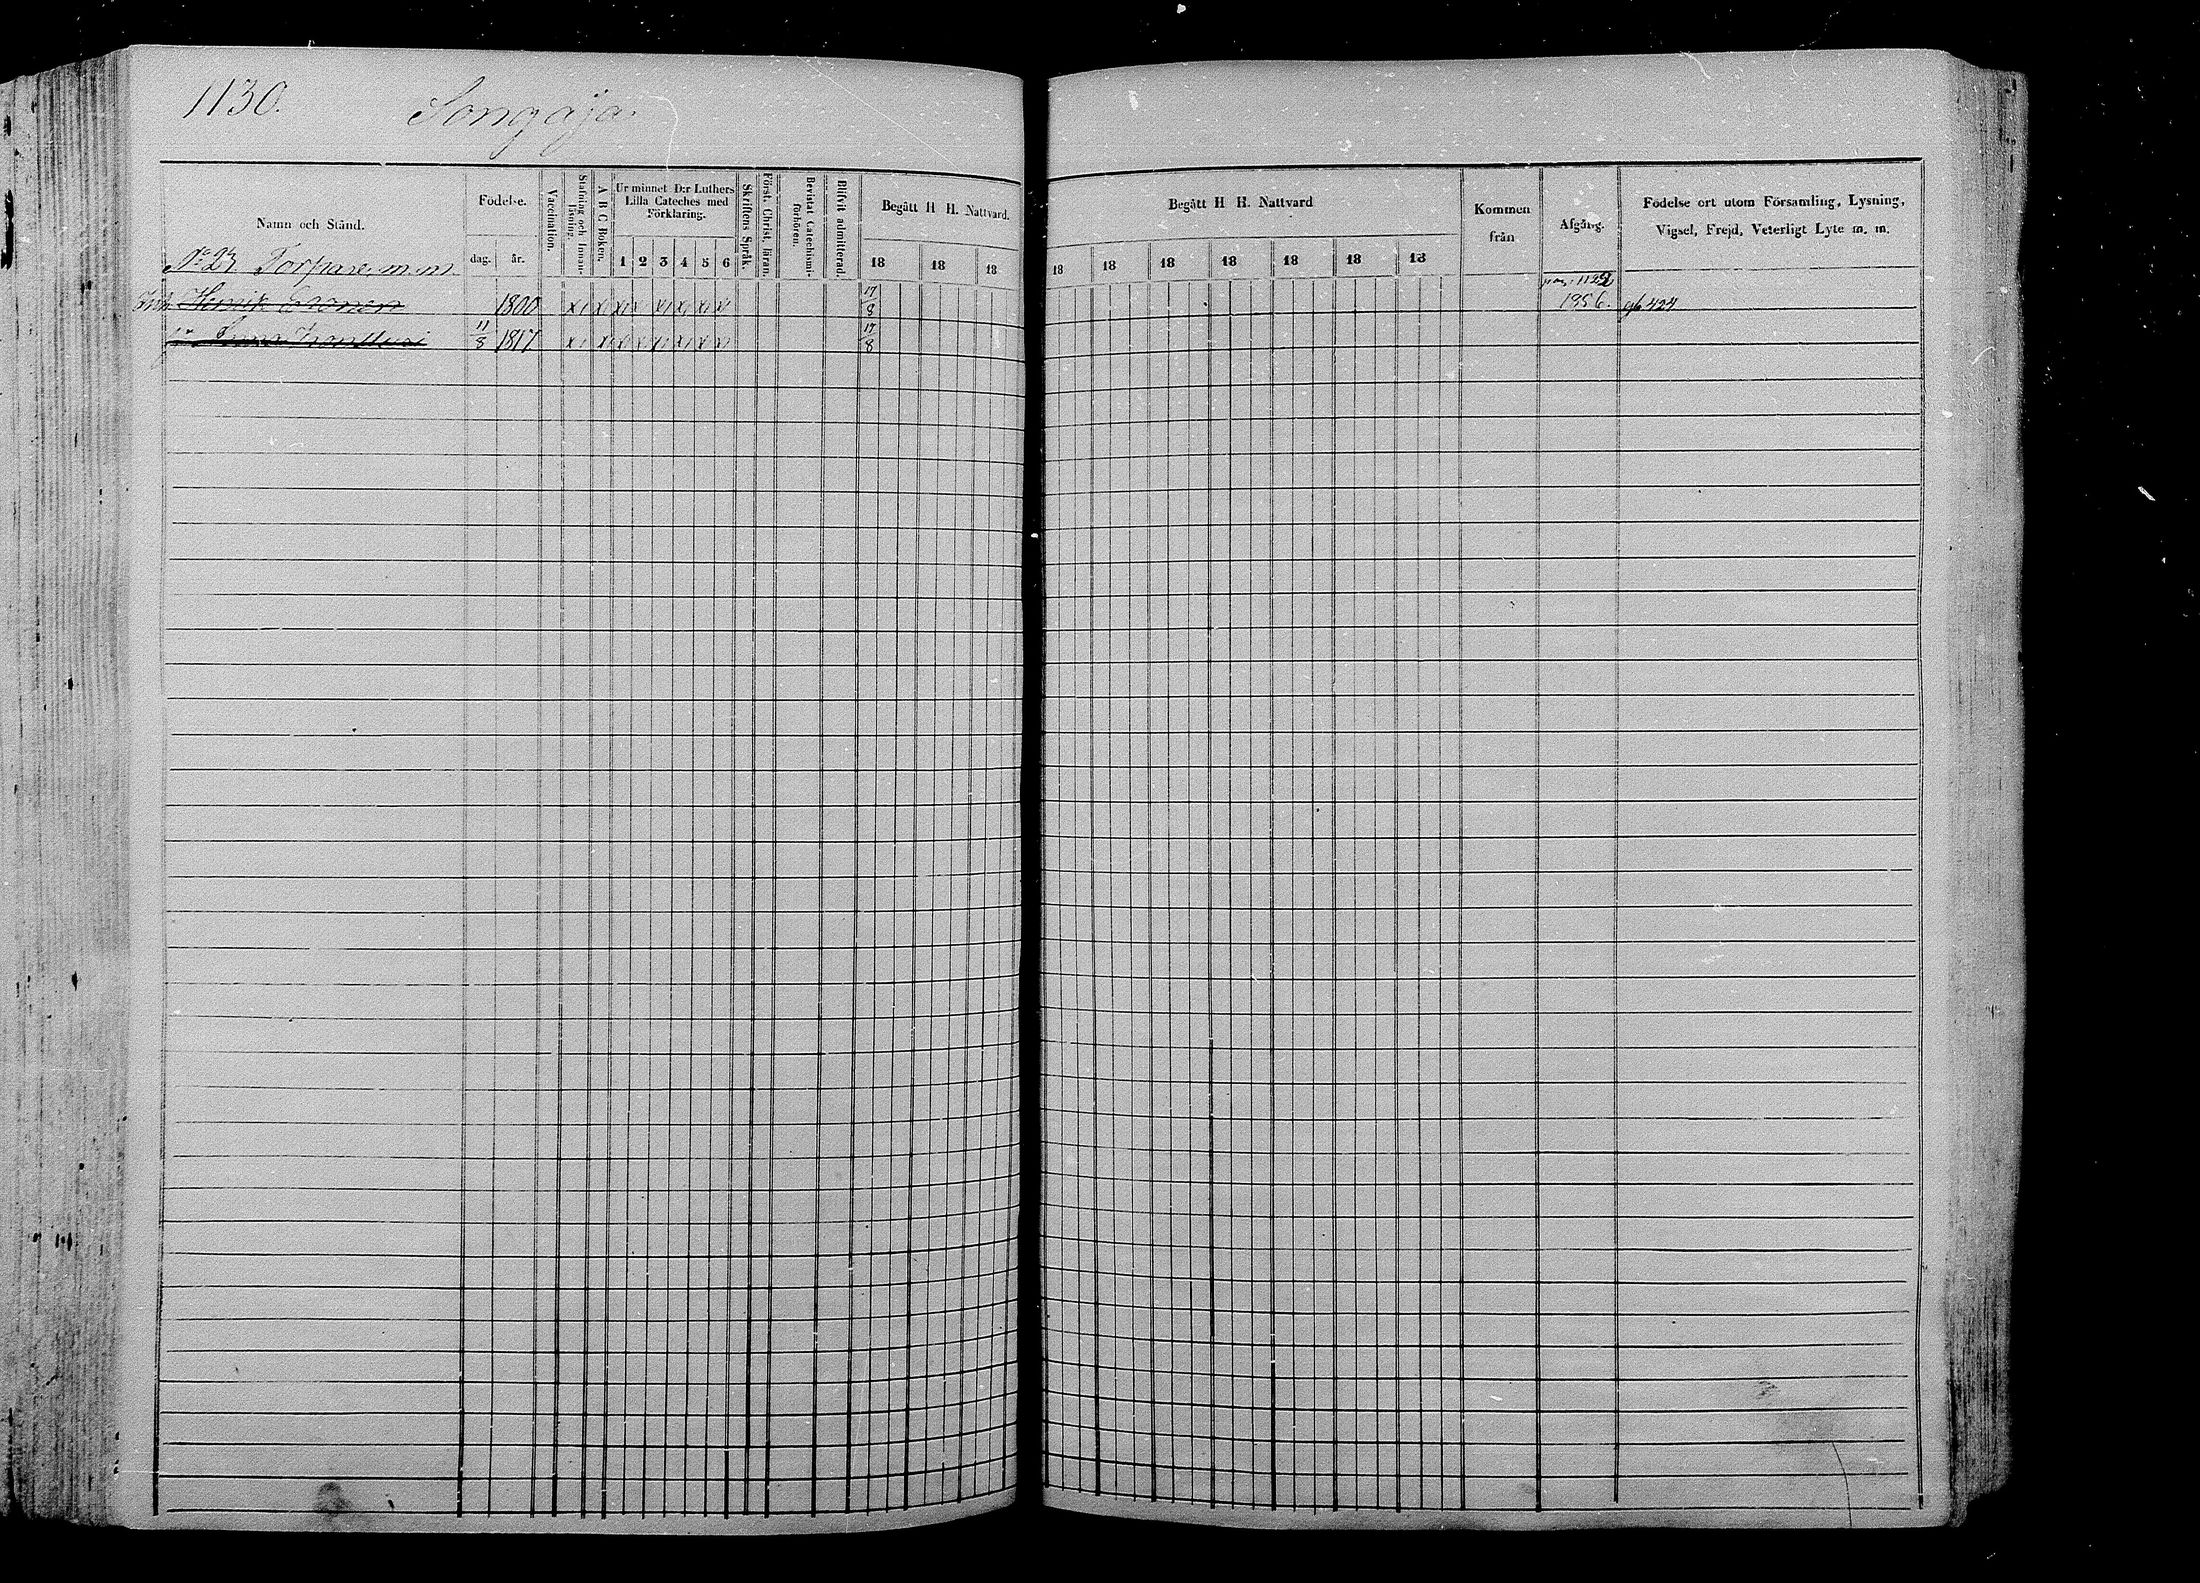 1130. Songaja.
Namn och Stånd.
Födelse.
dag. år.
Vaccination.
Stafning och Innan-läsning.
A B C Boken.
Ur minnet D:r Luthers
Lilla Cateches med
Förklaring.
1 2 3 4 5 6
Skriftens Språk.
Först. Christ. läran.
Bevistat Catechismi-förhören.
Blifvit admitterad.
Begått H H. Nattvard.
18 18 18
Begått H H. Nattvard
18 18 18 18 18 18 18
Kommen
från
Afgång.
Födelse ort utom Församling, Lysning,
Vigsel, Frejd, Veterligt Lyte m. m.
No 23 Torpare m m
pag. 1122
Henrik 1800 x x x x x x x x 17/8 1856. gb 424
11/8 1817 x x x x x x x x 17/8